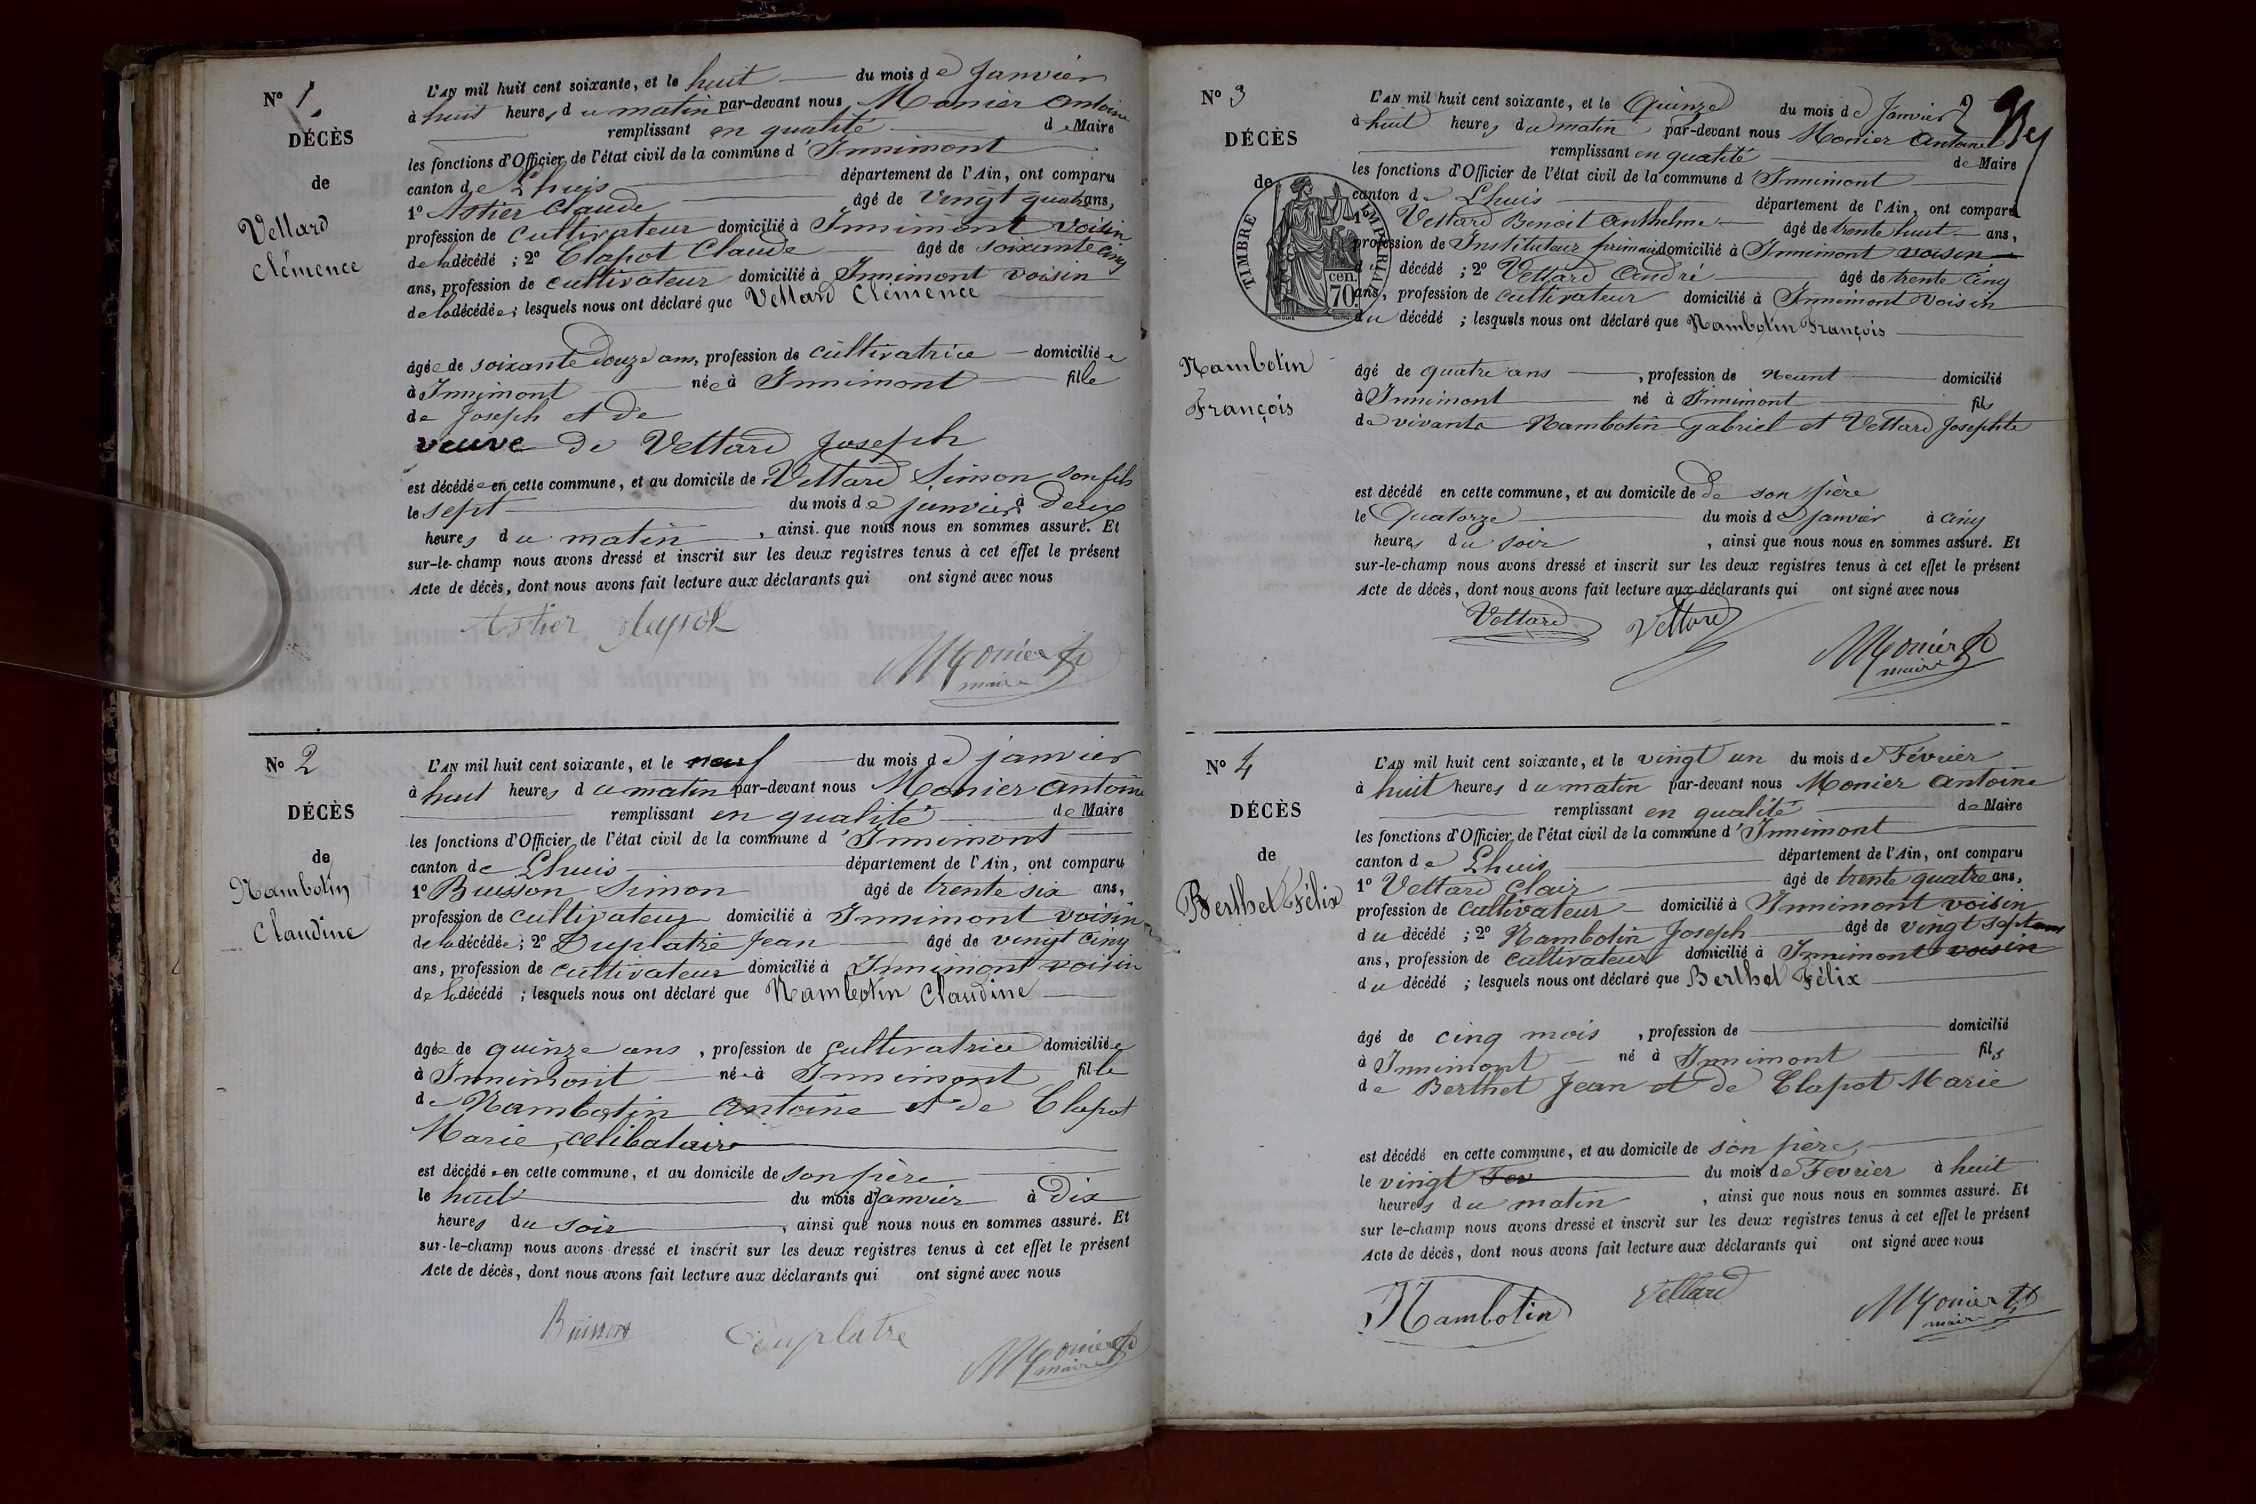 N° 1
DÉCÈS
de
Vettard
Clémence
L'AN mil huit cent soixante, et le huit du mois de Janvier
à huit heures du matin par-devant nous Monier Antoine
remplissant en qualité de Maire
les fonctions d'Officier de l'état civil de la commune d'Innimont
canton de Lhuis département de l'Ain, ont comparu
1° Astier Claude âgé de vingt quatre ans,
profession de cultivateur domicilié à Innimont voisin
de la décédé ; 2° Clapot Claude âgé de soixante cinq
ans, profession de cultivateur domicilié à Innimont voisin
de la décédée ; lesquels nous ont déclaré que Vettard Clémence
âgée de soixante douze ans, profession de cultivatrice domiciliée
à Innimont née à Innimont fille
de Joseph et de
veuve de Vettard Joseph
est décédée en cette commune, et au domicile de Vettard Simon son fils
le sept du mois de janvier à Deux
heures du matin, ainsi que nous nous en sommes assuré. Et
sur-le-champ nous avons dressé et inscrit sur les deux registres tenus à cet effet le présent
Acte de décès, dont nous avons fait lecture aux déclarants qui ont signé avec nous
Astier Clapot
Monier
maire
N° 2
DÉCÈS
de
Nambotin
Claudine
L'AN mil huit cent soixante, et le neuf du mois de janvier
à huit heures du matin par-devant nous Monier Antoine
remplissant en qualité de Maire
les fonctions d'Officier de l'état civil de la commune d'Innimont
canton de Lhuis département de l'Ain, ont comparu
1° Buisson Simon âgé de trente six ans,
profession de cultivateur domicilié à Innimont voisin
de la décédée ; 2° Duplatre Jean âgé de vingt cinq
ans, profession de cultivateur domicilié à Innimont voisin
de la décédé ; lesquels nous ont déclaré que Nambotin Claudine
âgée de quinze ans, profession de cultivatrice domiciliée
à Innimont née à Innimont fille
de Nambotin Antoine et de Clapot
Marie, célibataire
est décédée en cette commune, et au domicile de son père
le huit du mois d Janvier à Dix
heures du soir, ainsi que nous nous en sommes assuré. Et
sur-le-champ nous avons dressé et inscrit sur les deux registres tenus à cet effet le présent
Acte de décès, dont nous avons fait lecture aux déclarants qui ont signé avec nous
Buisson Duplatre
Monier
maire
N° 3
DÉCÈS
de
TIMBRE IMPÉRIAL
cen.
70
Nambotin
François
2
L'AN mil huit cent soixante, et le Quinze du mois de Janvier
à huit heures du matin par-devant nous Monier Antoine
remplissant en qualité de Maire
les fonctions d'Officier de l'état civil de la commune d'Innimont
canton de Lhuis département de l'Ain, ont comparu
1° Vettard Benoit Anthelme âgé de trente huit ans,
profession de Instituteur primaire domicilié à Innimont voisin
du décédé ; 2° Vettard André âgé de trente cinq
ans, profession de cultivateur domicilié à Innimont voisin
du décédé ; lesquels nous ont déclaré que Nambotin François
âgé de quatre ans, profession de neant domicilié
à Innimont né à Innimont fils
de vivants Nambotin Gabriel et Vettard Josephte
est décédé en cette commune, et au domicile de de son père
le Quatorze du mois de Janvier à cinq
heures du soir, ainsi que nous nous en sommes assuré. Et
sur-le-champ nous avons dressé et inscrit sur les deux registres tenus à cet effet le présent
Acte de décès, dont nous avons fait lecture aux déclarants qui ont signé avec nous
Vettard Vettard
Monier
maire
N° 4
DÉCÈS
de
Berthet Félix
L'AN mil huit cent soixante, et le vingt un du mois de Février
à huit heures du matin par-devant nous Monier Antoine
remplissant en qualité de Maire
les fonctions d'Officier de l'état civil de la commune d'Innimont
canton de Lhuis département de l'Ain, ont comparu
1° Vettard Clair âgé de trente quatre ans,
profession de cultivateur domicilié à Innimont voisin
du décédé ; 2° Nambotin Joseph âgé de vingt sept ans
ans, profession de cultivateur domicilié à Innimont voisin
du décédé ; lesquels nous ont déclaré que Berthet Félix
âgé de cinq mois, profession de domicilié
à Innimont né à Innimont fils
de Berthet Jean et de Clapot Marie
est décédé en cette commune, et au domicile de son père
le vingt Fev du mois de Fevrier à huit
heures du matin, ainsi que nous nous en sommes assuré. Et
sur le-champ nous avons dressé et inscrit sur les deux registres tenus à cet effet le présent
Acte de décès, dont nous avons fait lecture aux déclarants qui ont signé avec nous
Nambotin Vettard
Monier
maire